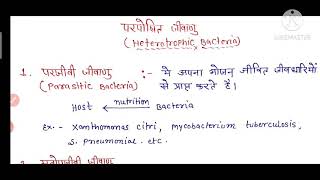 परपोषित जीवाणु
(Heterotrophic Bacteria)
1. परजीवी जीवाणु :- ये अपना भोजन जीवित जीवधारियों
(Parasitic Bacteria) से प्राप्त करते हैं।
Host ← nutrition Bacteria
Ex.- Xanthomonas citri, mycobacterium tuberculosis,
S. pneumonial. etc.